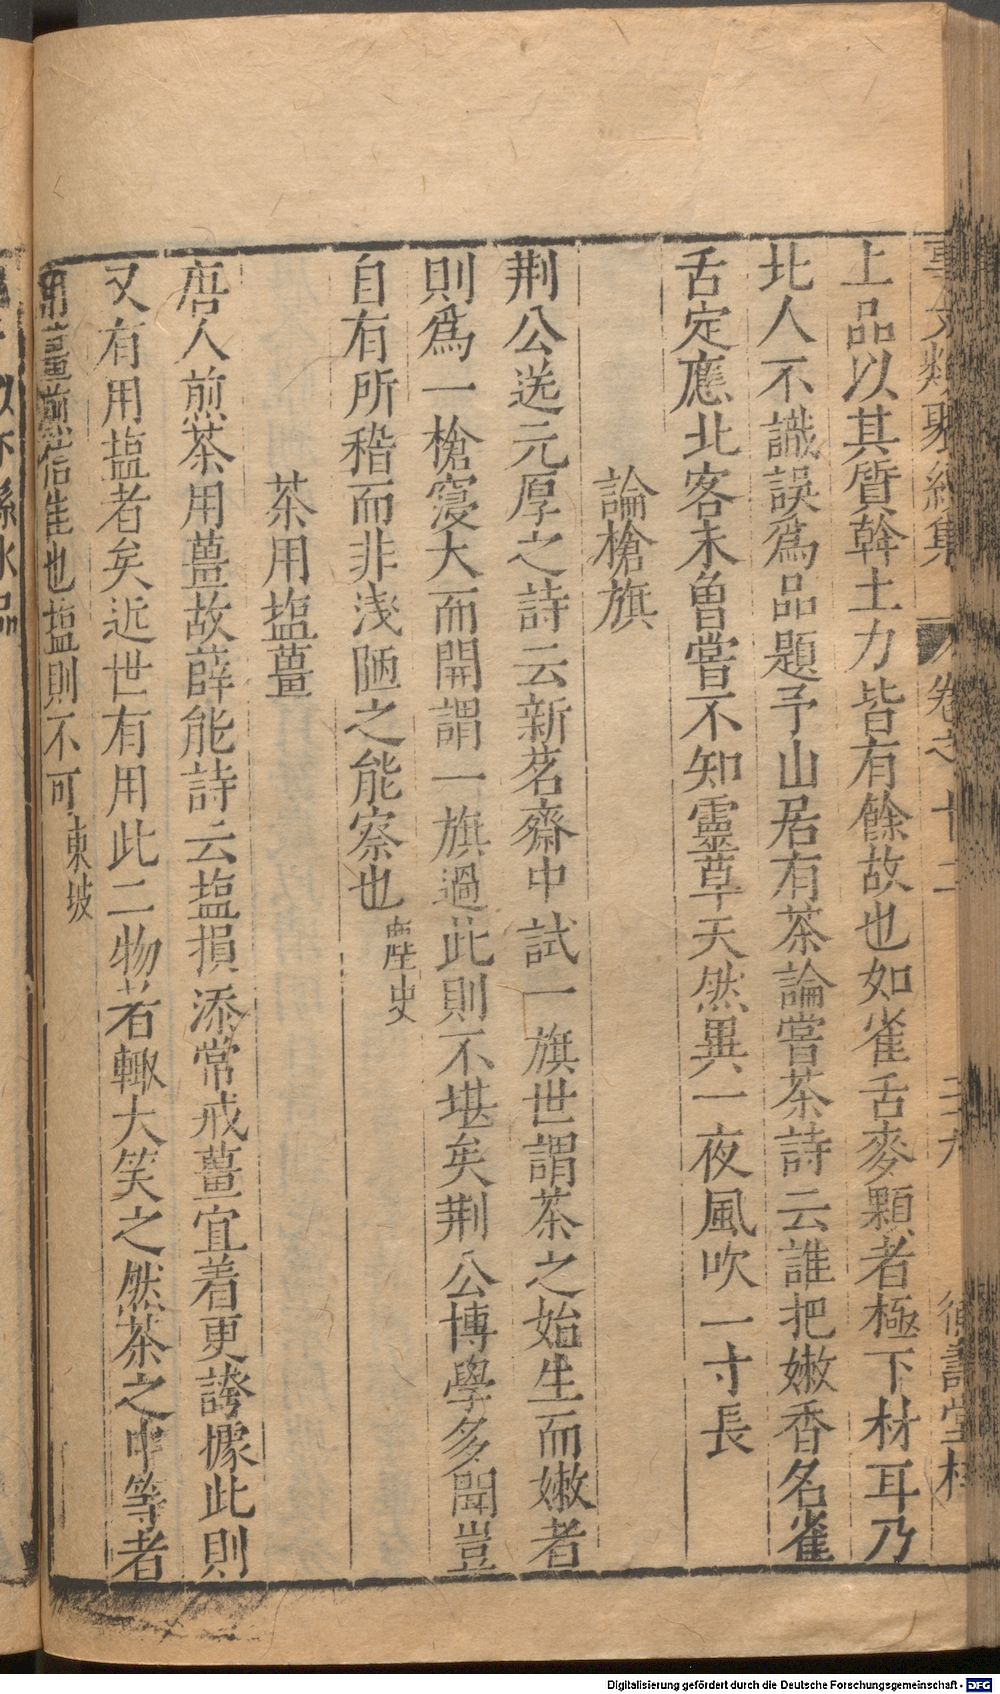 事文類聚續集 卷之十二
上品以其質幹土力皆有餘故也如雀舌麥顆者極下材耳乃
北人不識誤爲品題予山居有茶論嘗茶詩云誰把嫩香名雀
舌定應北客未曾嘗不知靈草天然異一夜風吹一寸長
論槍旗
荆公送元厚之詩云新茗齋中試一旗世謂茶之始生而嫩者
則爲一槍寖大而開謂一旗過此則不堪矣荆公博學多聞豈
自有所稽而非淺陋之能察也 麈史
茶用塩薑
唐人煎茶用薑故薛能詩云塩損添常戒薑宜着更誇據此則
又有用塩者矣近世有用此二物者輙大笑之然茶之中等者
用薑煎信佳也塩則不可 東坡
Digitalisierung gefördert durch die Deutsche Forschungsgemeinschaft - DFG